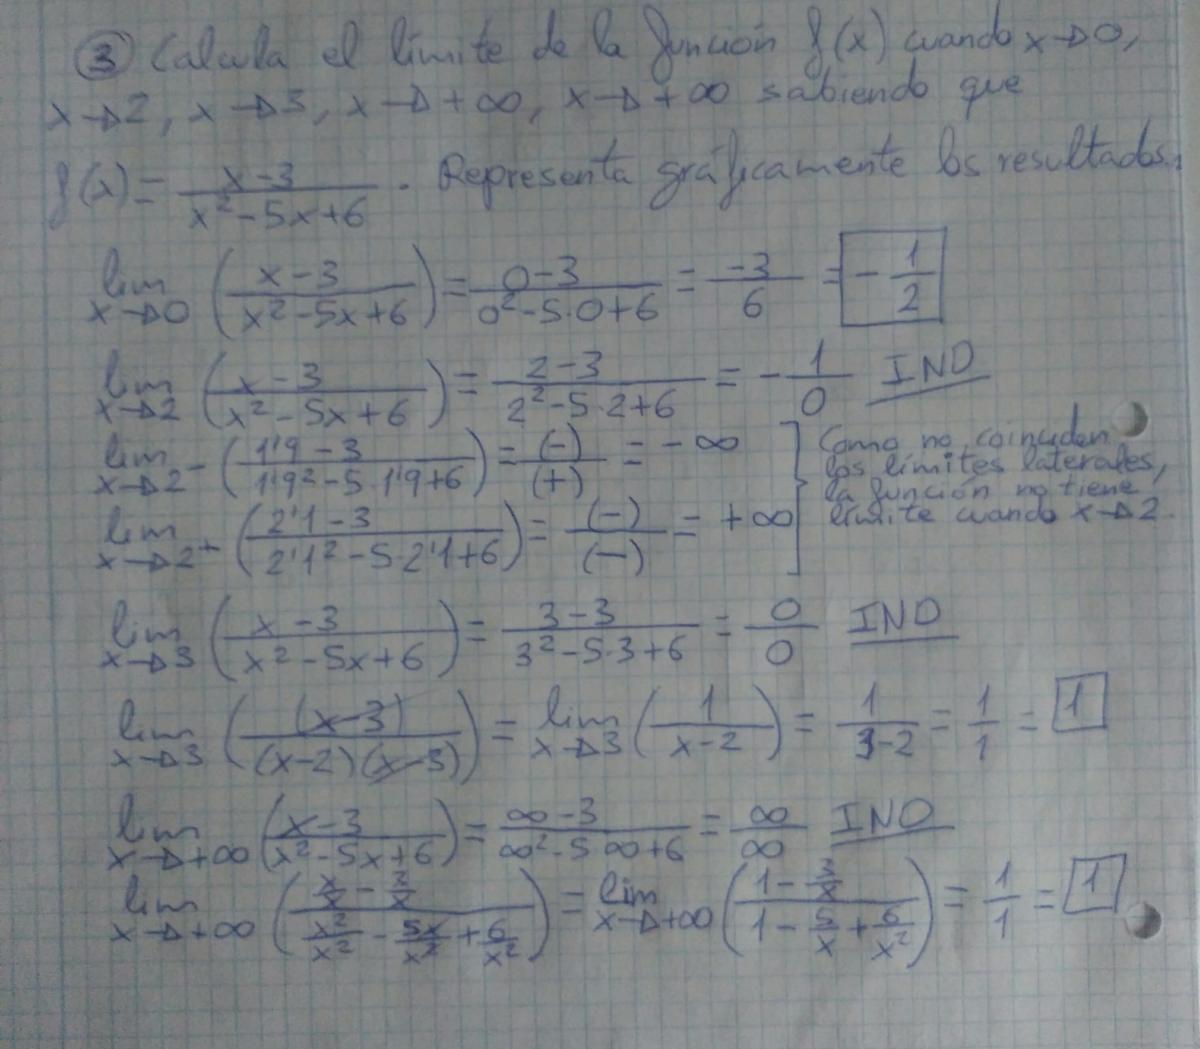 ③ Calcula el límite de la función f(x) cuando x→0,
x→2, x→3, x→+∞, x→+∞ sabiendo que
f(x) = (x-3)/(x²-5x+6). Representa gráficamente los resultados.
lim x→0 ((x-3)/(x²-5x+6)) = (0-3)/(0²-5·0+6) = -3/6 = -1/2
lim x→2 ((x-3)/(x²-5x+6)) = (2-3)/(2²-5·2+6) = -1/0 IND
lim x→2⁻ ((1'9-3)/(1'9²-5·1'9+6)) = (-)/(+) = -∞
lim x→2⁺ ((2'1-3)/(2'1²-5·2'1+6)) = (-)/(-) = +∞
Como no coinciden
los límites laterales,
la función no tiene
límite cuando x→2.
lim x→3 ((x-3)/(x²-5x+6)) = (3-3)/(3²-5·3+6) = 0/0 IND
lim x→3 ((x-3)/((x-2)(x-3))) = lim x→3 (1/(x-2)) = 1/(3-2) = 1/1 = 1
lim x→+∞ ((x-3)/(x²-5x+6)) = (∞-3)/(∞²-5∞+6) = ∞/∞ IND
lim x→+∞ ((x/x - 3/x)/(x²/x² - 5x/x² + 6/x²)) = lim x→+∞ ((1 - 3/x)/(1 - 5/x + 6/x²)) = 1/1 = 1